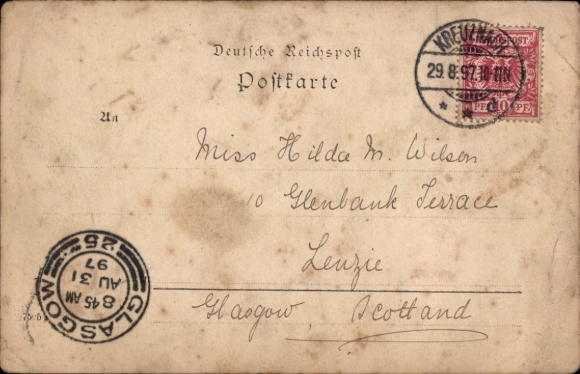 Deutsche Reichspost
Postkarte
An
KREUZNACH
29.8.97.10-11N
d
REICHSPOST
PF 10 PF
Miss Hilda M. Wilson
10 Glenbank Terrace
Lenzie
Glasgow, Scotland
GLASGOW
8 45 AM
AU 31
97
25